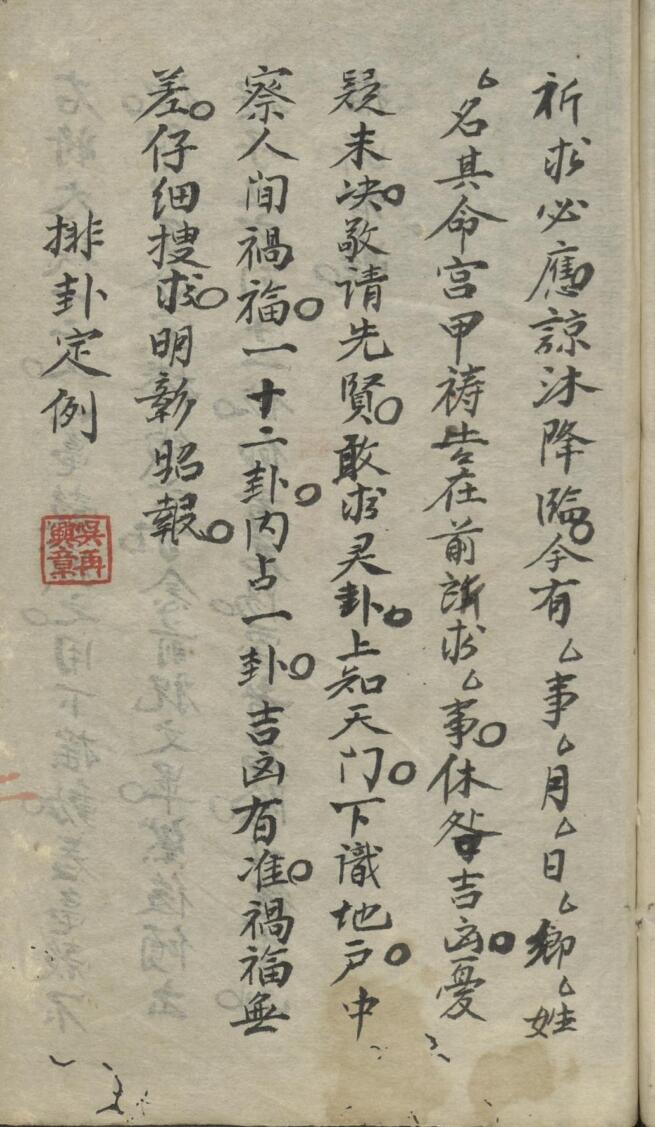 祈求必應諒沐降臨。今有厶事厶月厶日厶鄉厶姓
厶名其命宮甲禱告在前訴求厶事。休咎吉凶。憂
疑未决。敬请先賢。敢求灵卦。上知天门。下識地户。中
察人间禍福。一十二卦。内占一卦。吉凶有准。禍福無
差。仔细搜求。明彰昭報。
排卦定例
吳再
興章